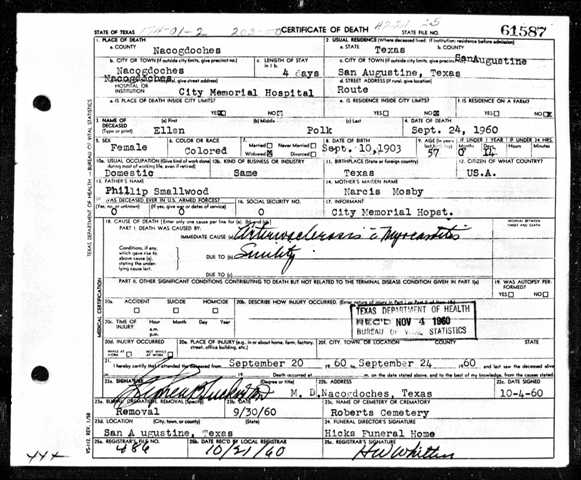 STATE OF TEXAS CERTIFICATE OF DEATH STATE FILE NO. 61587
1. PLACE OF DEATH
a. COUNTY
Nacogdoches
2. USUAL RESIDENCE (Where deceased lived. If institution: residence before admission)
a. STATE
Texas
b. COUNTY
SanAugustine
b. CITY OR TOWN (If outside city limits, give precinct no.)
Nacogdoches
c. LENGTH OF STAY
4 days
c. CITY OR TOWN (If outside city limits, give precinct no.)
San Augustine, Texas
Nacogdoches
HOSPITAL OR INSTITUTION
City Memorial Hospital
d. STREET ADDRESS (If rural, give location)
Route
e. IS PLACE OF DEATH INSIDE CITY LIMITS?
YES NO
e. IS RESIDENCE INSIDE CITY LIMITS?
YES NO
f. IS RESIDENCE ON A FARM?
YES NO
3. NAME OF DECEASED
(Type or print)
(a) First
Ellen
(b) Middle
(c) Last
Polk
4. DATE OF DEATH
Sept. 24, 1960
5. SEX
Female
6. COLOR OR RACE
Colored
7. Married Never Married
Widowed Divorced
8. DATE OF BIRTH
Sept. 10,1903
9. AGE
57
10a. USUAL OCCUPATION (Give kind of work done
Domestic
10b. KIND OF BUSINESS OR INDUSTRY
Same
11. BIRTHPLACE (State or foreign country)
Texas
12. CITIZEN OF WHAT COUNTRY?
US.A.
13. FATHER'S NAME
Phillip Smallwood
14. MOTHER'S MAIDEN NAME
Narcis Mosby
15. WAS DECEASED EVER IN U.S. ARMED FORCES?
(Yes, no, or unknown) (If yes, give war or dates of service)
0 0
16. SOCIAL SECURITY NO.
0
17. INFORMANT
City Memorial Hopst.
18. CAUSE OF DEATH (Enter only one cause per line for (a), (b), and (c).)
PART I. DEATH WAS CAUSED BY:
IMMEDIATE CAUSE (a)
Conditions, if any, which gave rise to above cause (a), stating the underlying cause last.
DUE TO (b)
Senility
DUE TO (c)
INTERVAL BETWEEN ONSET AND DEATH
PART II. OTHER SIGNIFICANT CONDITIONS CONTRIBUTING TO DEATH BUT NOT RELATED TO THE TERMINAL DISEASE CONDITION GIVEN IN PART I(a)
19. WAS AUTOPSY PERFORMED?
YES NO
20a. ACCIDENT SUICIDE HOMICIDE
20b. DESCRIBE HOW INJURY OCCURRED.
TEXAS DEPARTMENT OF HEALTH
REC'D NOV 4 1960
BUREAU OF VITAL STATISTICS
20c. TIME OF INJURY
Hour Month Day Year
a.m.
p.m.
20d. INJURY OCCURRED
20e. PLACE OF INJURY (e.g. in or about home, farm, factory, street, office building, etc.)
20f. CITY, TOWN, OR LOCATION COUNTY STATE
21. I hereby certify that I attended the deceased from September 20 1960 to September 24 1960
22a. SIGNATURE (Degree or title)
M. D.
22b. ADDRESS
Nacogdoches, Texas
22c. DATE SIGNED
10-4-60
23a. BURIAL, CREMATION, REMOVAL (Specify)
Removal
23b. DATE
9/30/60
23c. NAME OF CEMETERY OR CREMATORY
Roberts Cemetery
23d. LOCATION (City, town, or county) (State)
San A ugustine, Texas
24. FUNERAL DIRECTOR'S SIGNATURE
Hicks Funeral Home
25a. REGISTRAR'S FILE NO.
486
25b. DATE REC'D BY LOCAL REGISTRAR
10/21/60
25c. REGISTRAR'S SIGNATURE
TEXAS DEPARTMENT OF HEALTH — BUREAU OF VITAL STATISTICS
MEDICAL CERTIFICATION